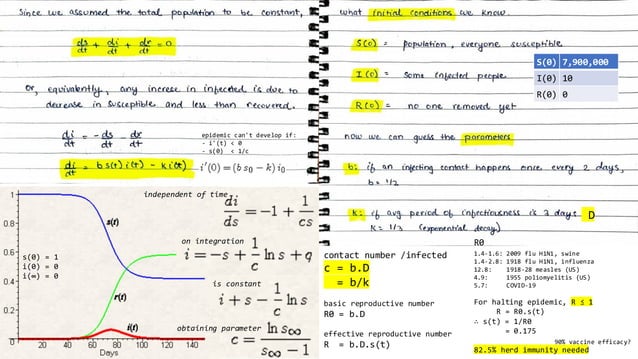 Since we assumed the total population to be constant,
ds/dt + di/dt + dr/dt = 0
Or, equivalently, any increase in infected is due to
decrease in susceptible and less than recovered.
di/dt = - ds/dt - dr/dt
di/dt = b s(t) i(t) - k i(t)
epidemic can't develop if:
- i'(t) < 0
- s(0) < 1/c
i'(0) = (b s0 - k) i0
what initial conditions we know.
S(0) = population, everyone susceptible
I(0) = some infected people
R(0) = no one removed yet
S(0) 7,900,000
I(0) 10
R(0) 0
now we can guess the parameters
b: if an infecting contact happens once every 2 days,
b = 1/2
k: if avg period of infectiousness is 3 days D
k = 1/3 (exponential decay)
1
0.8
0.6
0.4
0.2
0 20 40 60 80 100 120 140
Days
s(t)
r(t)
i(t)
s(0) = 1
i(0) = 0
i(∞) = 0
independent of time
di/ds = -1 + 1/cs
on integration
i = -s + 1/c ln s + q
is constant
i + s - 1/c ln s
obtaining parameter
c = ln s∞ / s∞ - 1
contact number /infected
c = b.D
= b/k
basic reproductive number
R0 = b.D
effective reproductive number
R = b.D.s(t)
R0
1.4-1.6: 2009 flu H1N1, swine
1.4-2.8: 1918 flu H1N1, influenza
12.8: 1918-28 measles (US)
4.9: 1955 poliomyelitis (US)
5.7: COVID-19
For halting epidemic, R ≤ 1
R = R0.s(t)
∴ s(t) = 1/R0
= 0.175
90% vaccine efficacy?
82.5% herd immunity needed